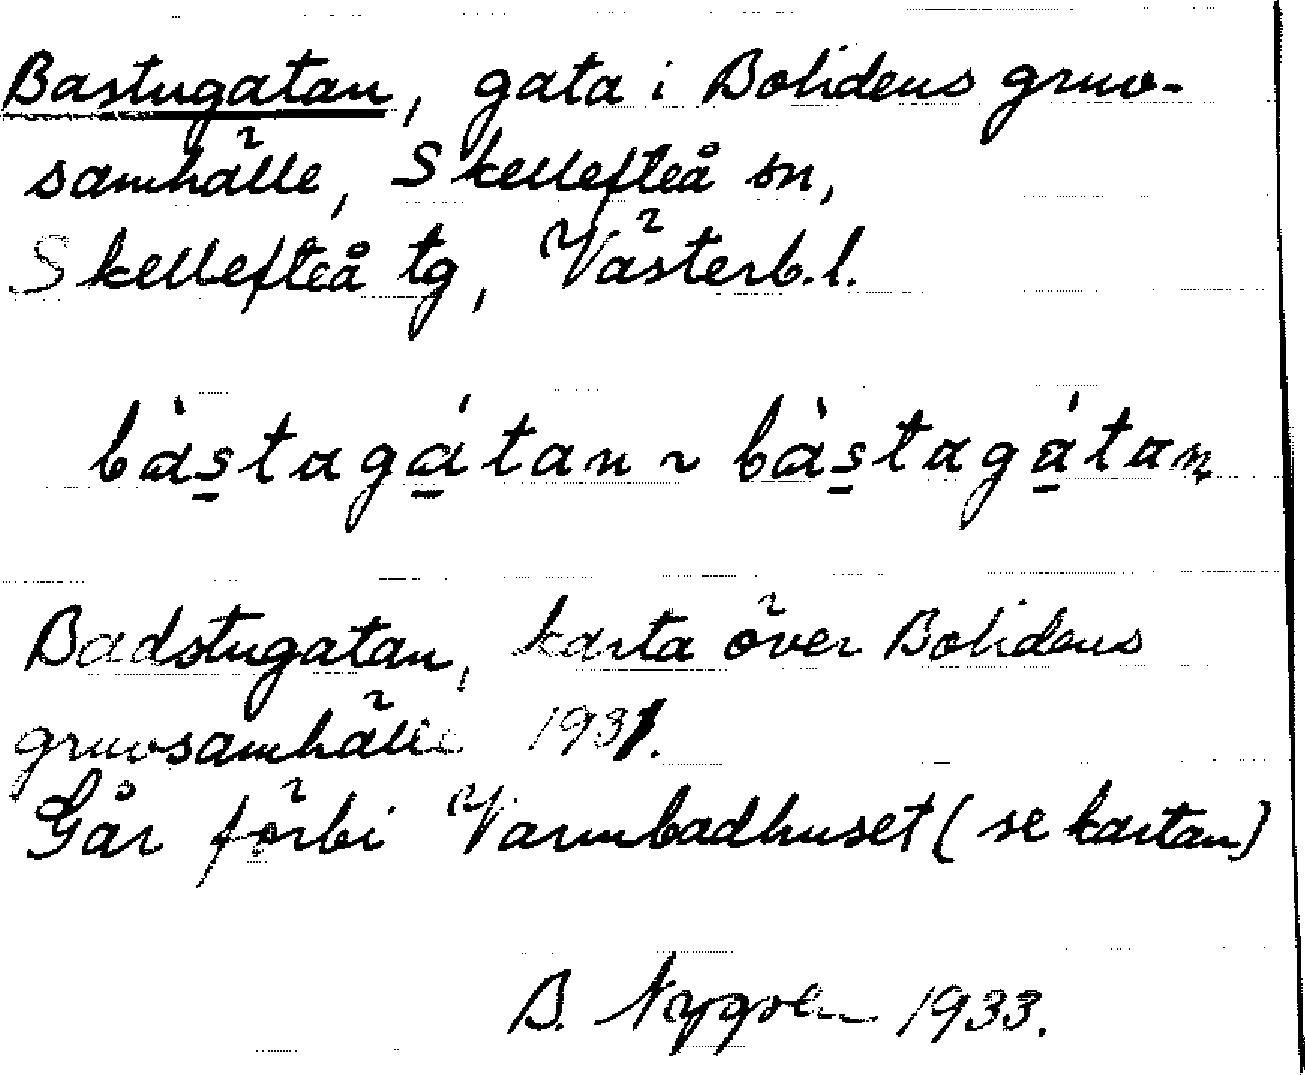 Bastugatan, gata i Bolidens gruv-
samhälle, Skellefteå sn,
Skellefteå tg, Västerb. l.
bàs̱tagá̱tan ~ bàs̱tagá̱tan
Badstugatan, karta över Bolidens
gruvsamhälle 1931.
Går förbi Varmbadhuset (se kartan)
B. Nygren 1933.